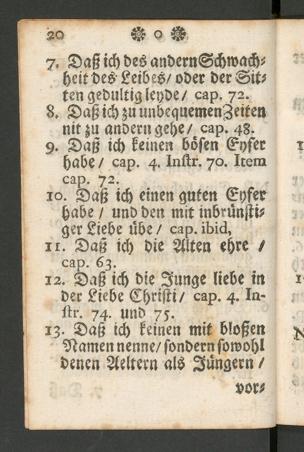 20 ❁ o ❁
7. Daß ich des andern Schwach-
heit des Leibes / oder der Sit-
ten gedultig leyde / cap. 72.
8. Daß ich zu unbequemen Zeiten
nit zu andern gehe / cap. 48.
9. Daß ich keinen bösen Eyfer
habe / cap. 4. Instr. 70. Item
cap. 72.
10. Daß ich einen guten Eyfer
habe / und den mit inbrünsti-
ger Liebe übe / cap. ibid,
11. Daß ich die Alten ehre /
cap. 63.
12. Daß ich die Junge liebe in
der Liebe Christi / cap. 4. In-
str. 74. und 75.
13. Daß ich keinen mit bloßen
Namen nenne / sondern sowohl
denen Aeltern als Jüngern /
vor-